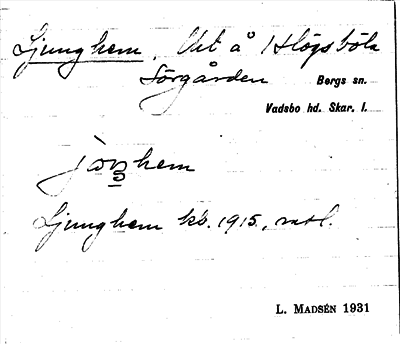 Ljunghem. Utt å Högsböla
Sörgården Bergs sn.
Vadsbo hd. Skar. l.
Ljunghem kb. 1915,
L. MADSÉN 1931